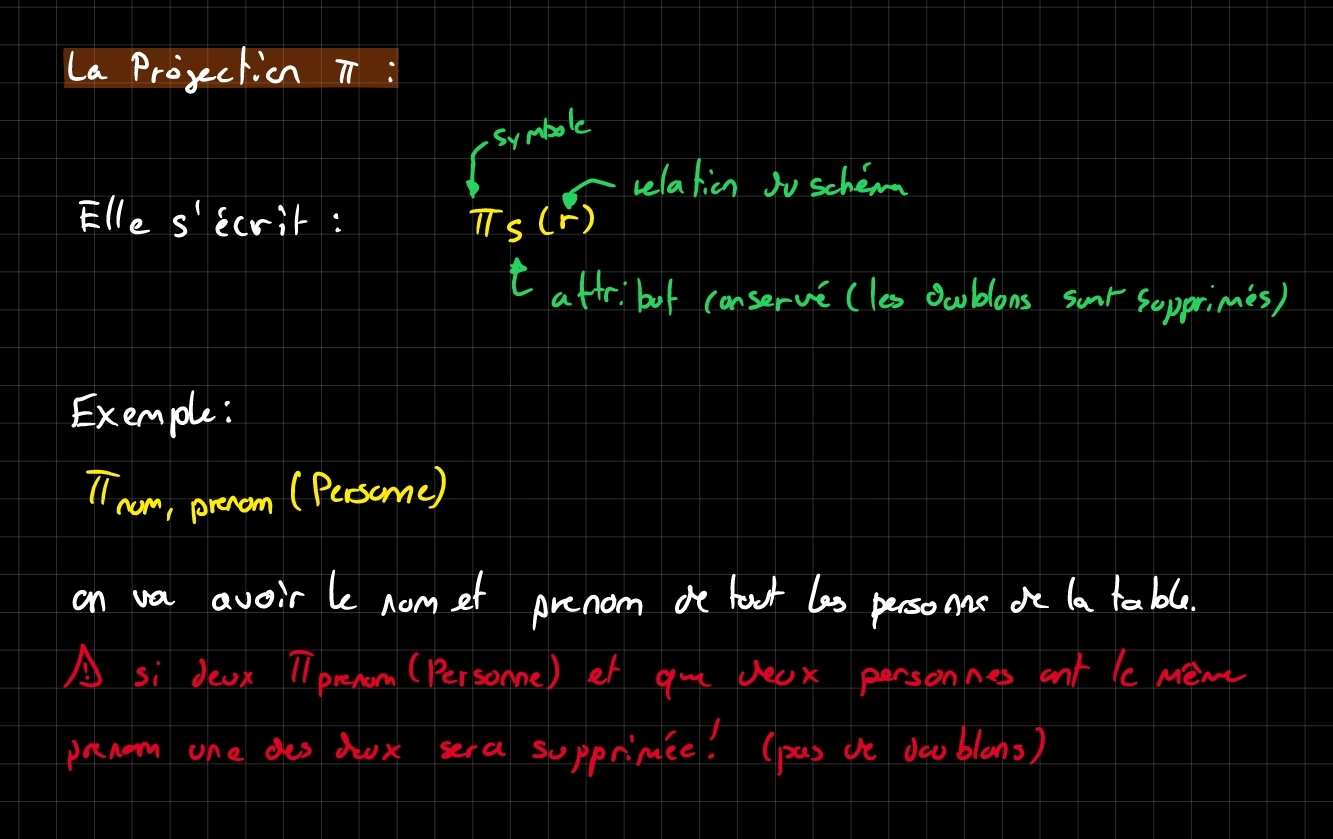 La Projection π :
symbole
relation du schéma
Elle s'écrit : π s (r)
attribut conservé (les doublons sont supprimés)
Exemple :
π nom, prenom (Personne)
on va avoir le nom et prenom de tout les personne de la table.
⚠ si deux π prenom (Personne) et que deux personnes ont le même
prenom une des deux sera supprimée ! (pas de doublons)